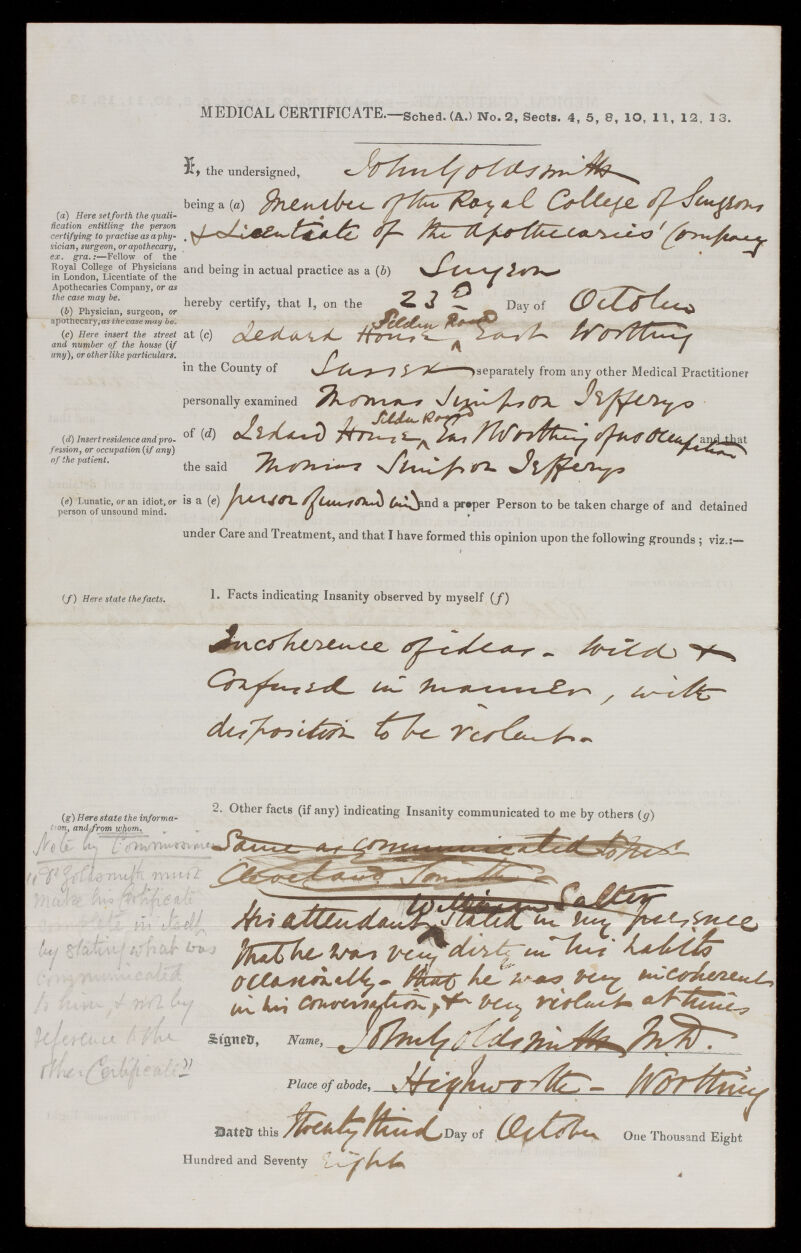 MEDICAL CERTIFICATE.—Sched. (A.) No. 2, Sects. 4, 5, 8, 10, 11, 12, 13.
I, the undersigned, John Goldsmith
being a (a) Member of the Royal College of Surgeons
& Licentiate of the Apothecaries' Company
(a) Here set forth the quali-
fication entitling the person
certifying to practise as a phy-
sician, surgeon, or apothecary,
ex. gra.:—Fellow of the
Royal College of Physicians
in London, Licentiate of the
Apothecaries Company, or as
the case may be.
and being in actual practice as a (b) Surgeon
(b) Physician, surgeon, or
apothecary, as the case may be.
hereby certify, that I, on the 23d Day of October
Selden Road
at (c) Ledard House East Worthing
(c) Here insert the street
and number of the house (if
any), or other like particulars.
in the County of Sussex separately from any other Medical Practitioner
personally examined Thomas Simpson Jefferys
Selden Road
of (d) Ledard House, East Worthing of no occupation and that
(d) Insert residence and pro-
fession, or occupation (if any)
of the patient.
the said Thomas Simpson Jefferys
is a (e) person of unsound mind and a proper Person to be taken charge of and detained
(e) Lunatic, or an idiot, or
person of unsound mind.
under Care and Treatment, and that I have formed this opinion upon the following grounds; viz.:—
1. Facts indicating Insanity observed by myself (f)
(f) Here state the facts.
Incoherence of ideas - Wild &
Confused in manner, with
disposition to be violent -
2. Other facts (if any) indicating Insanity communicated to me by others (g)
(g) Here state the informa-
tion, and from whom.
Same as communicated to
Cleveland Smith
William Salter
His attendant stated in my presence
that he was very dirty in his habits
occasionally - that he was very incoherent
in his conversation, & very violent at times
Note by Commissioners
"Dr Goldsmith must
make his Certificate
complete in itself
by stating what was
communicated
to him, & not by
reference to the
other Certificate"
Signed, Name, John Goldsmith M.D.
Place of abode, Highworth - Worthing
Dated this twenty third Day of October One Thousand Eight
Hundred and Seventy Eight